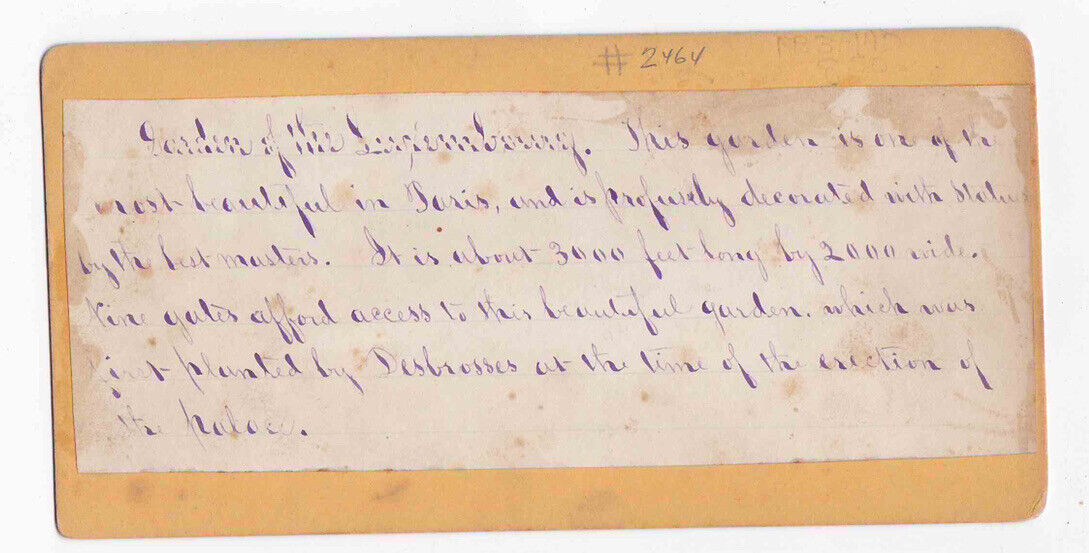 # 2464
Garden of the Luxembourg. This garden is on of the
most beautiful in Paris, and is profusely decorated with statues
by the best masters. It is about 3000 feet long by 2000 wide.
Nine gates afford access to this beautiful garden. which was
first planted by Desbrosses at the time of the erection of
the palace.